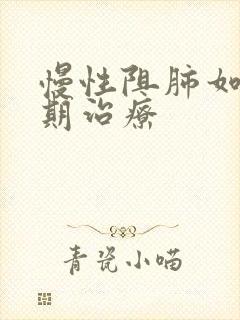 慢性阻肺如
期治療
青瓷小喵